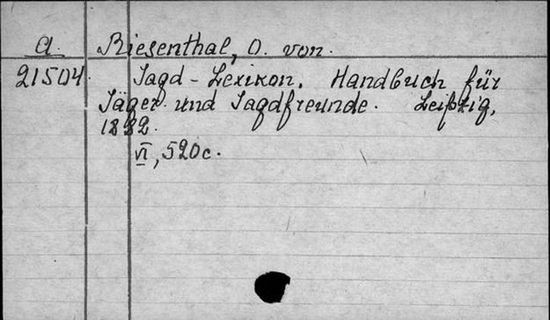 a. Riesenthal, O. von.
21504. Jagd-Lexikon. Handbuch für
Jäger und Jagdfreunde. Leipzig,
1882.
VI, 520c.